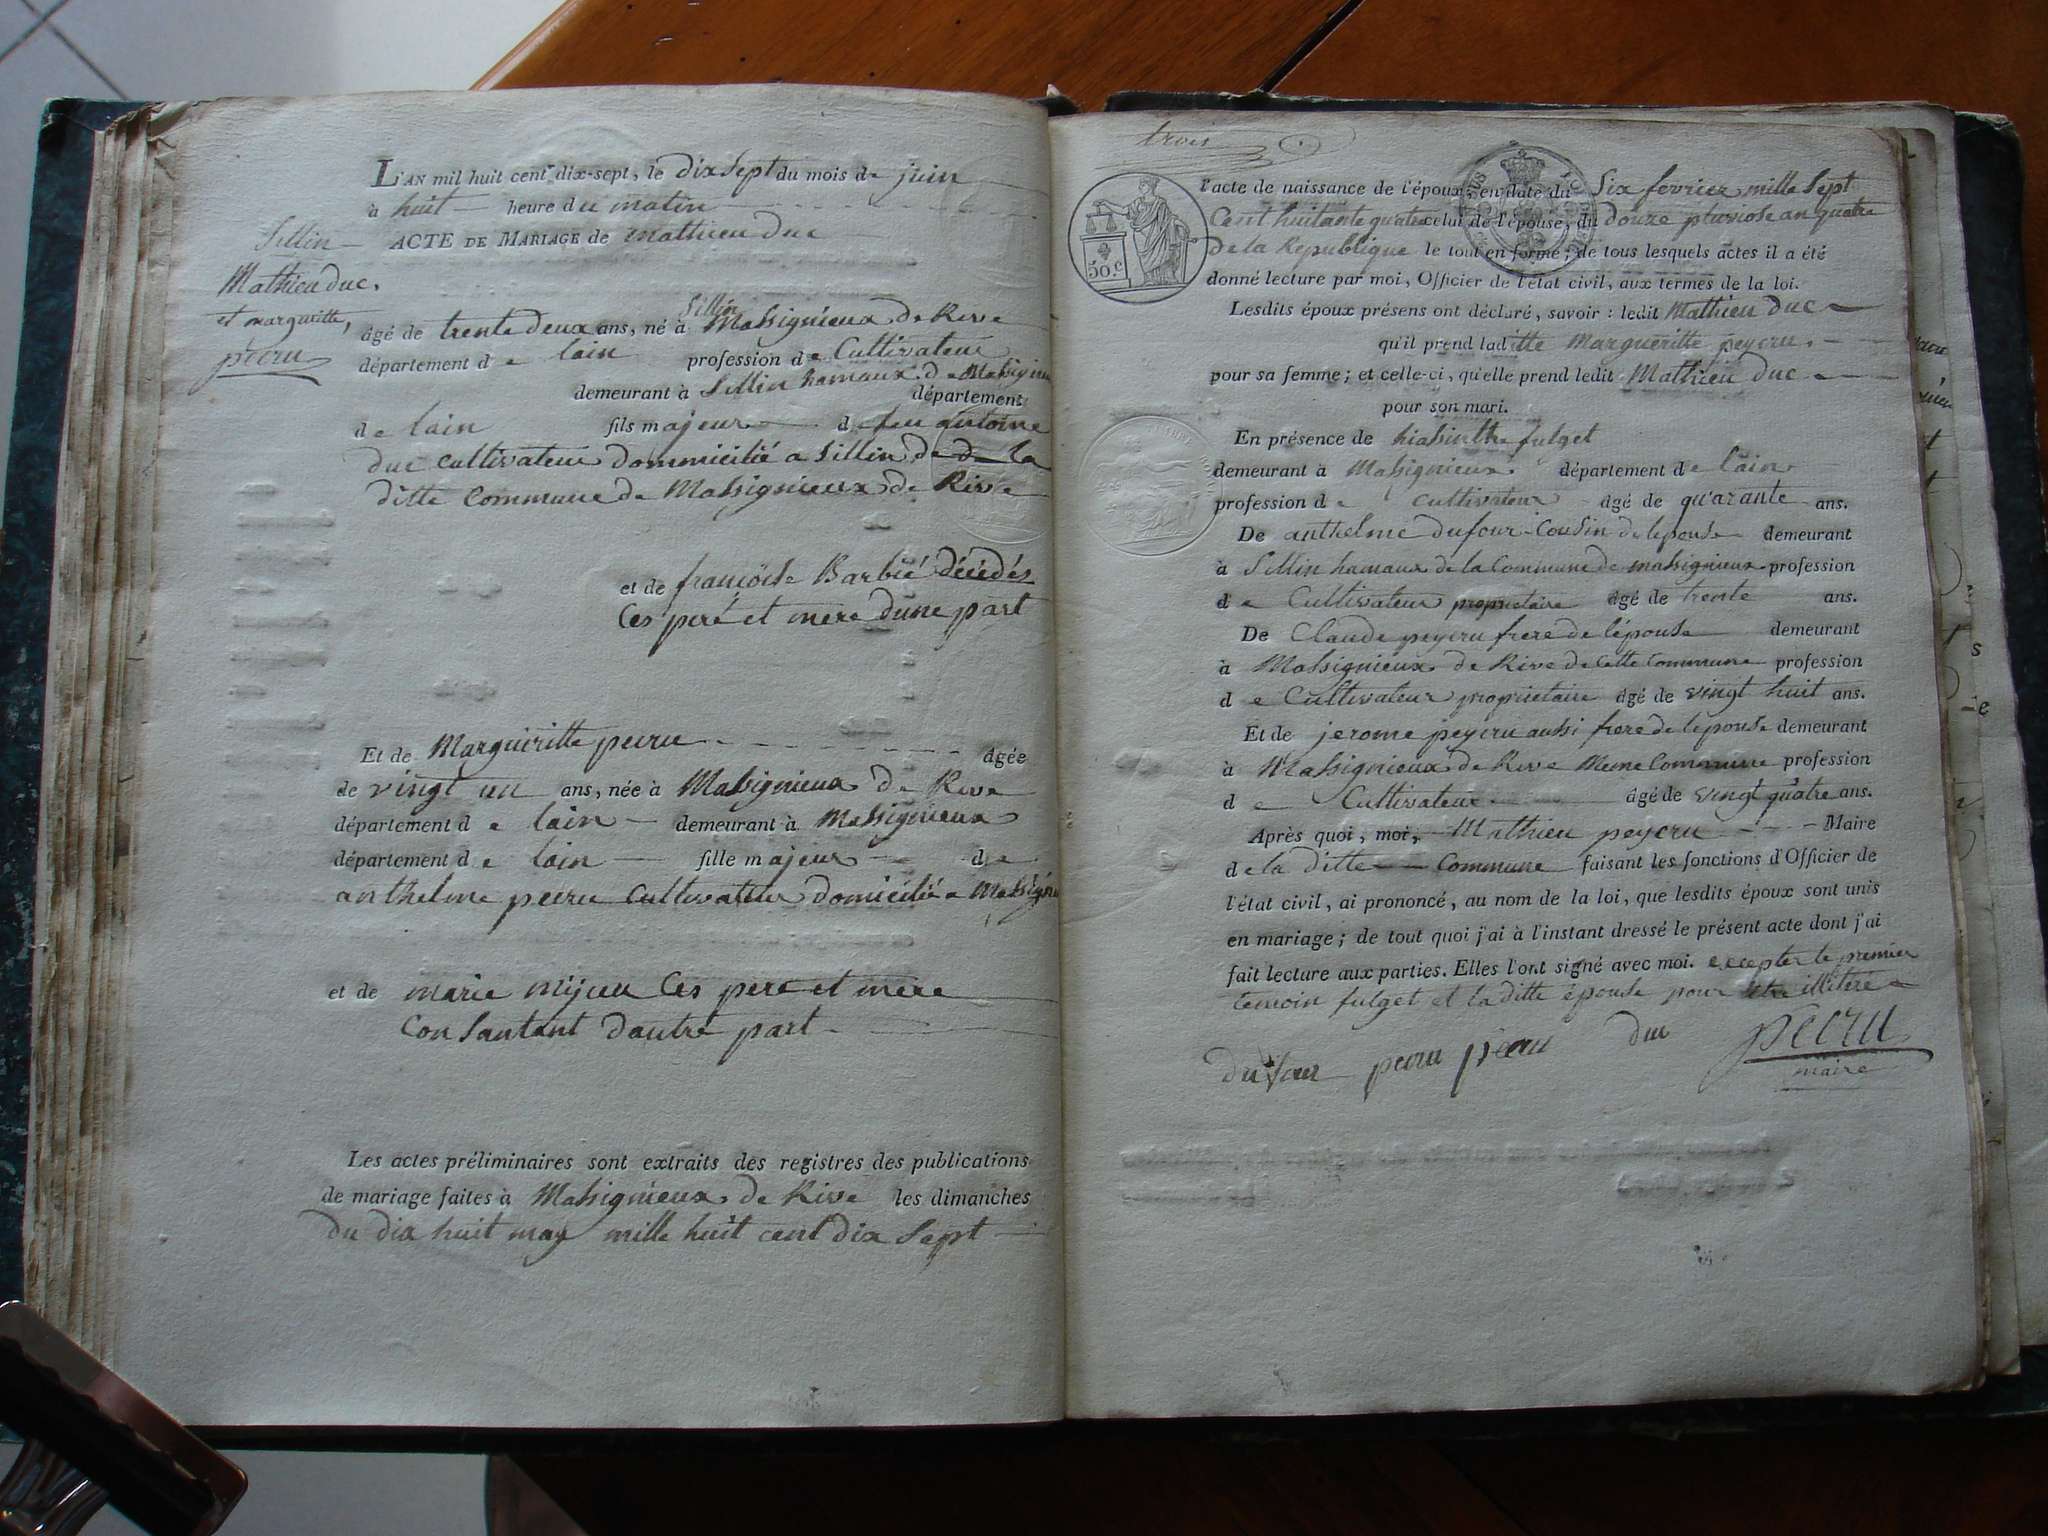 L'AN mil huit cent dix-sept, le dix Sept du mois de juin
à huit heure du matin
Sillin
ACTE DE MARIAGE de mathieu duc
Mathieu duc,
et margueritte,
pecru
Sillin
âgé de trente deux ans, né à Massignieux de Rive
département de lain profession de Cultivateur
demeurant à Sillin hamaux de Massignieu
département
de lain fils majeur de feu antoine
duc cultivateur dommicilié a Sillin de de la
ditte Commune de Massignieux de Rive
et de françoise Barbié décédés
Ces peré et mere dune part
Et de Margueritte pecru âgée
de vingt un ans, née à Massignieux de Rive
département de lain demeurant à Massignieux
département de lain fille majeur de
anthelme pecru Cultivateur domicilié a Massigni
et de marie mijeu Ces pere et mere
Consantant dautre part
Les actes préliminaires sont extraits des registres des publications
de mariage faites à Massignieux de Rive les dimanches
du dix huit may mille huit cent dix Sept
trois
50.c
l'acte de naissance de l'époux, en date du Six fevrier mille Sept
Cent huitante quatre celui de l'épouse, du douze pluviose an quatre
De la Republique le tout en forme; de tous lesquels actes il a été
donné lecture par moi, Officier de l'état civil, aux termes de la loi.
Lesdits époux présens ont déclaré, savoir : ledit Mathieu Duc
qu'il prend laditte Margueritte peycru.
pour sa femme; et celle-ci, qu'elle prend ledit Mathieu Duc
pour son mari.
En présence de hiassinthe fulget
demeurant à Massignieux département de Lain
profession de cultivateur âgé de quarante ans.
De anthelme dufour Cousin de lepouse demeurant
à Sillin hamaux de la Commune de massignieux profession
de Cultivateur proprietaire âgé de trente ans.
De Claude peycru frere de lépouse demeurant
à Massignieux de Rive de Cette Commune profession
de Cultivateur proprietaire âgé de vingt huit ans.
Et de jerome peycru aussi frere de lepouse demeurant
à Massignieux de Rive Meme Commune profession
de Cultivateur âgé de vingt quatre ans.
Après quoi, moi, Mathieu peycru Maire
de la ditte Commune faisant les fonctions d'Officier de
l'état civil, ai prononcé, au nom de la loi, que lesdits époux sont unis
en mariage; de tout quoi j'ai à l'instant dressé le présent acte dont j'ai
fait lecture aux parties. Elles l'ont signé avec moi. excepter le premier
temoin fulget et laditte épouse pour etre illiteré
dufour pecru pecru duc pecru
maire